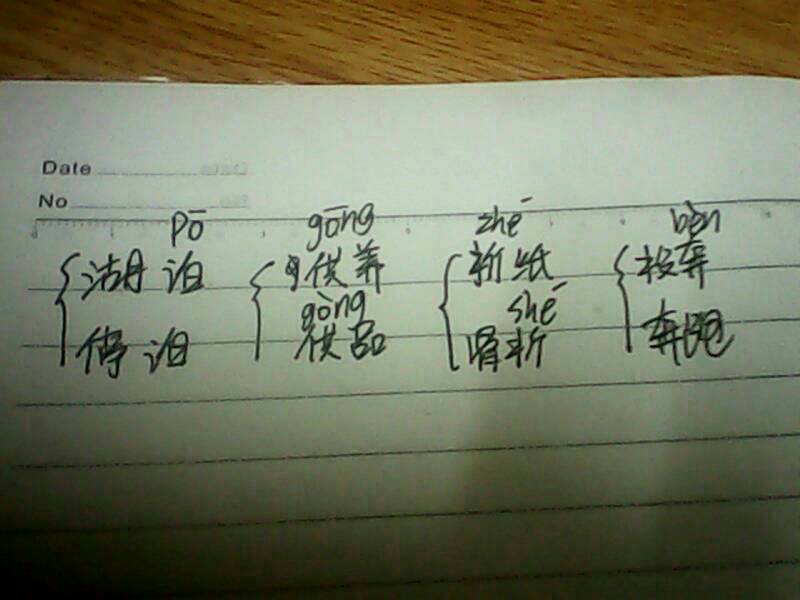 Date
No
pō gōng zhē bèn
湖泊 供养 折纸 投奔
gòng shē
停泊 供品 骨折 奔跑